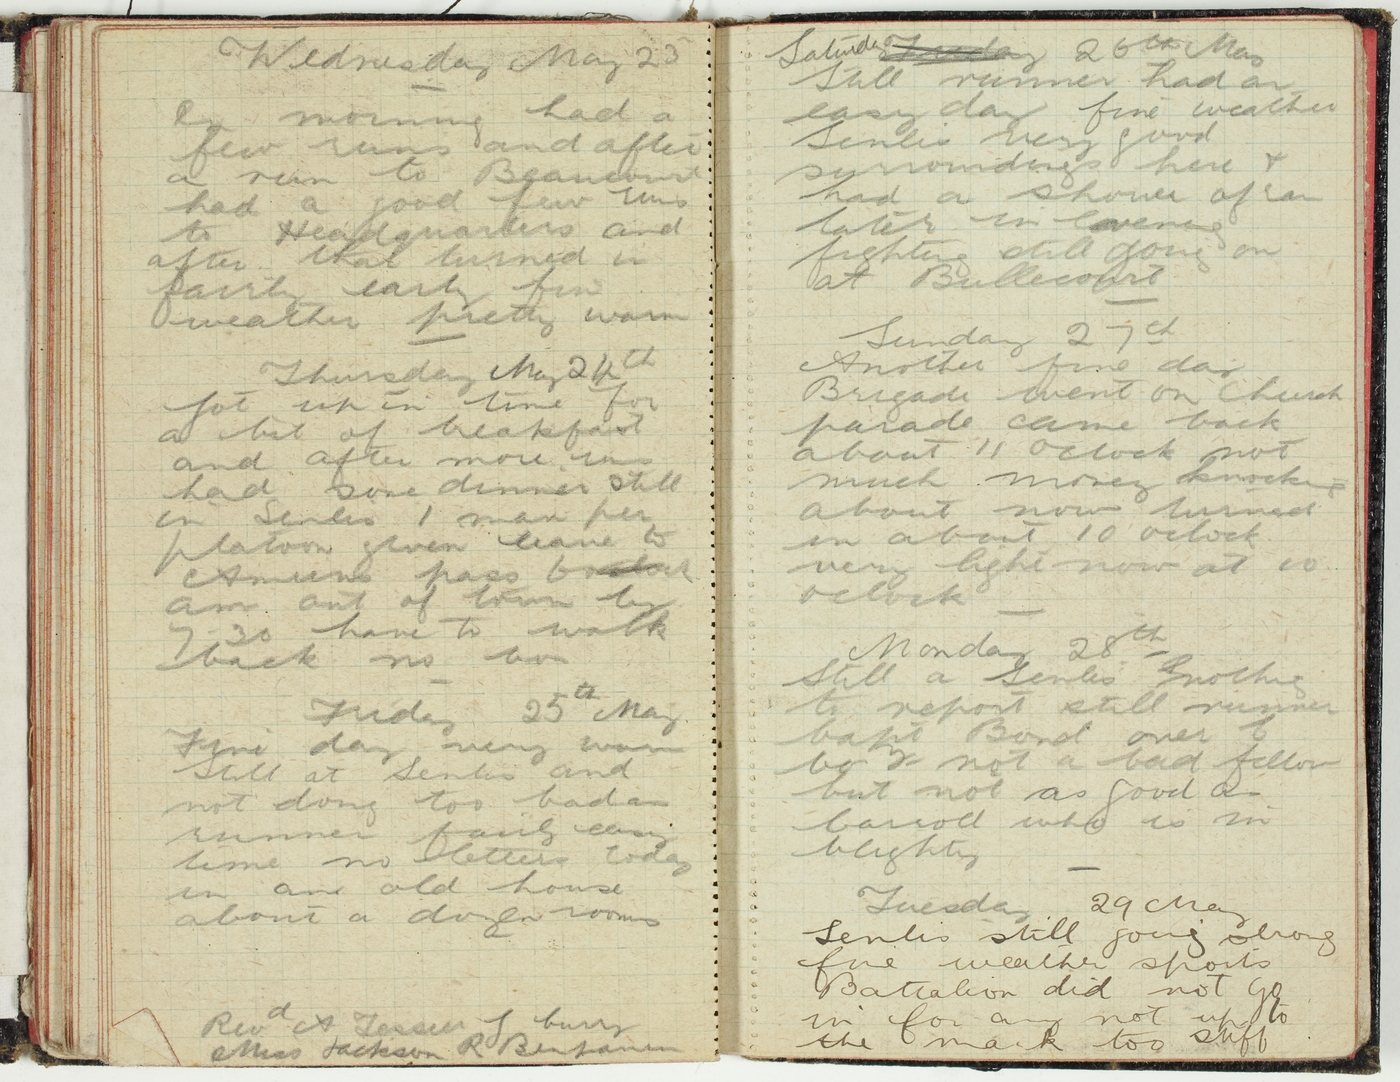 Wednesday May 23
morning had a
few runs and after
a run to Beaucourt
had a good few runs
to Headquarters and
after that turned in
fairly early fine
weather pretty warm
Thursday May 24th
Got up in time for
a bit of breakfast
and after more runs
had some dinner still
in Senlis 1 man per
platoon given leave to
Amiens pass
am out of town by
7-30 have to walk
back no
Friday 25th May
Fine day very warm
Still at Senlis and
not doing too bad as
runner fairly easy
time no letters today
in an old house
about a dozen rooms
Revd A Tessier
Miss Jackson R Benjamin
Saturday 26th May
Still runner had an
easy day fine weather
Senlis very good
surroundings here &
had a shower of rain
later in evening
fighting still going on
at Bullecourt
Sunday 27th
Another fine day
Brigade went on Church
parade came back
about 11 oclock not
much money knocking
about now turned
in about 10 oclock
very light now at 10
oclock
Monday 28th
Still a Senlis & nothing
to report still runner
Capt Bond over
not a bad fellow
but not as good as
Carroll who is in
blighty
Tuesday 29 May
Senlis still going strong
fine weather sports
Battalion did not go
in for any not up to
the mark too stiff